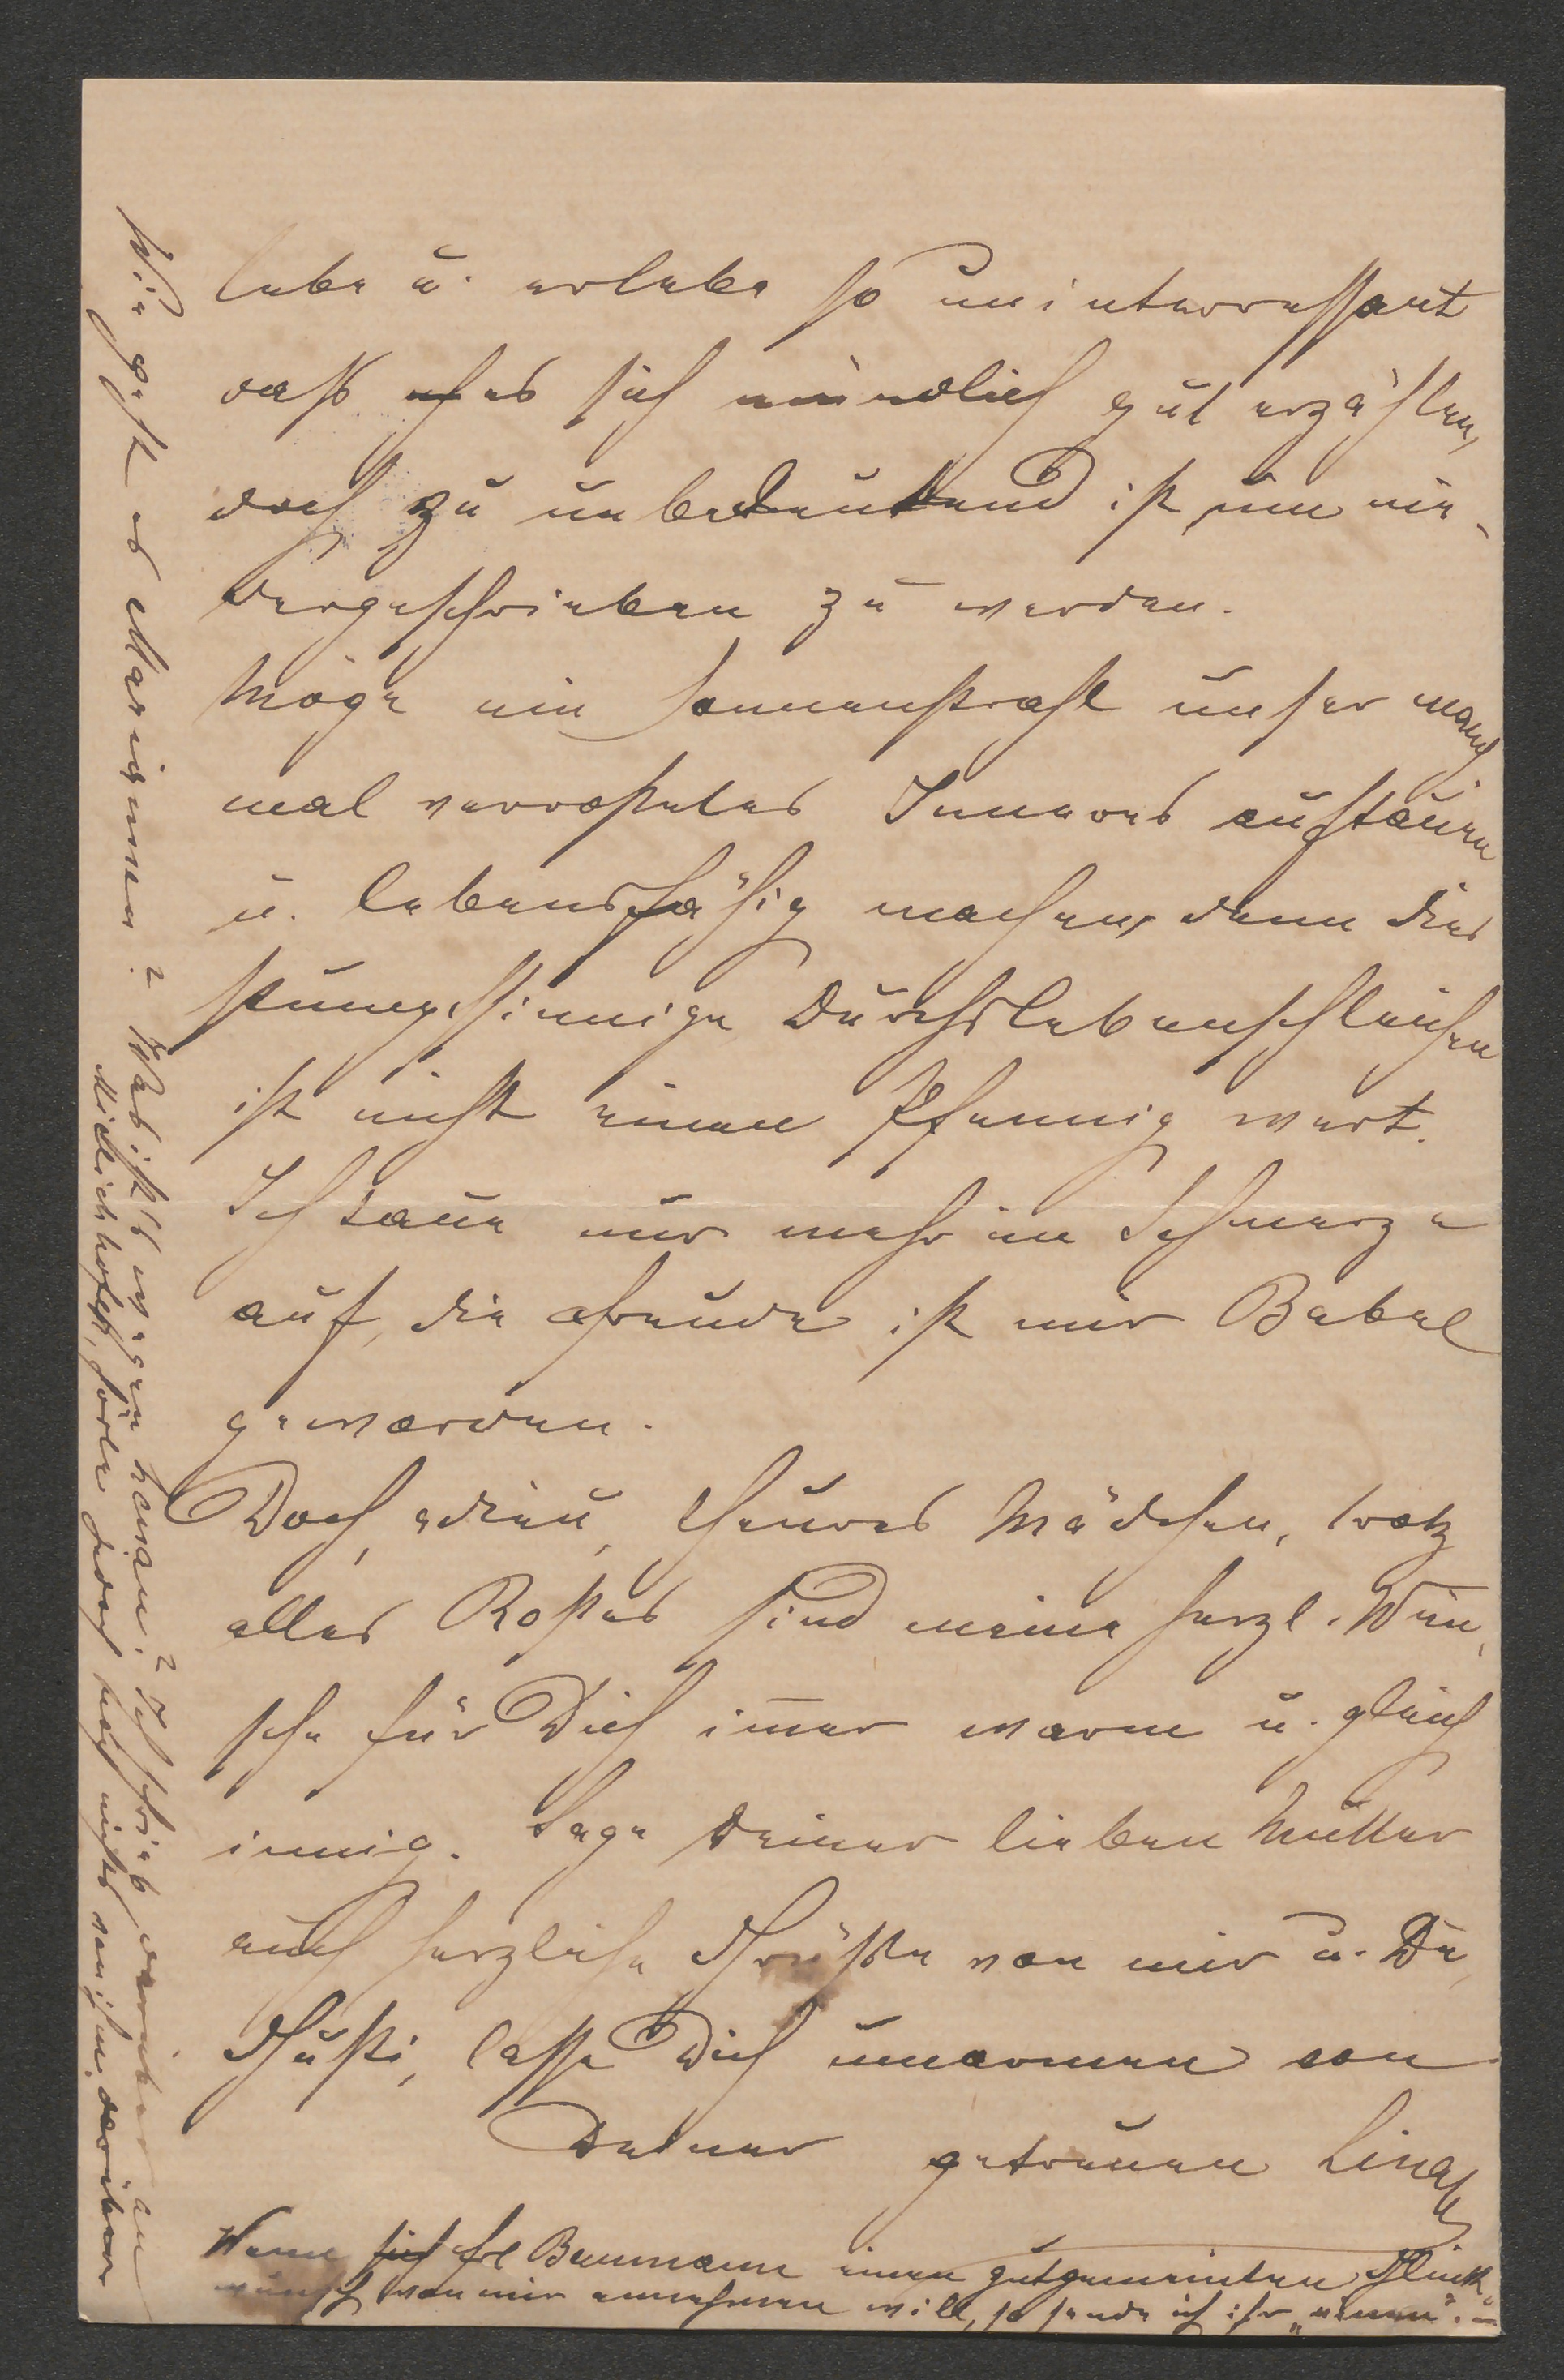 lebe u. erlebe so uninterressant
daß es sich mündlich gut erzählen,
doch zu unbedeutend ist, um nie-
dergeschrieben zu werden.
Möge ein Sonnenstrahl unser manch
mal verrostetes Inneres auftauen
u. lebensfähig machen, denn dies
stumpfsinnige Durchslebenschleichen
ist nicht einen Pfennig wert.
Ich taue nur mehr im Schmerze
auf, die Freude ist mir Babel
geworden.
Doch, adieu, theures Mädchen, trotz
alles Rostes sind meine herzl. Wün-
sche für Dich immer warm u. gleich
innig. Sage Deiner lieben Mutter
auch herzliche Grüße von mir u. Du,
Gusti, lasse Dich umarmen von
Deiner getreuen Lina
Wenn Frl Baumann einen gutgemeinten Glück-
wunsch von mir annehmen will, so sende ich ihr "einen". –
Wie geht es Mariannen? Was ist's wegen ? Ich schrieb darüber an
hörte jedoch noch nichts von ihm darüber